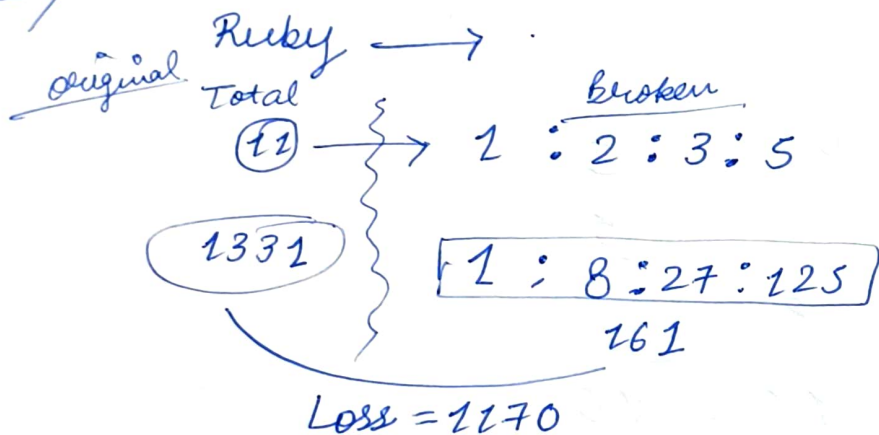 Ruby →
original Total Broken
11 → 1 : 2 : 3 : 5
1331 1 : 8 : 27 : 125
161
Loss = 1170